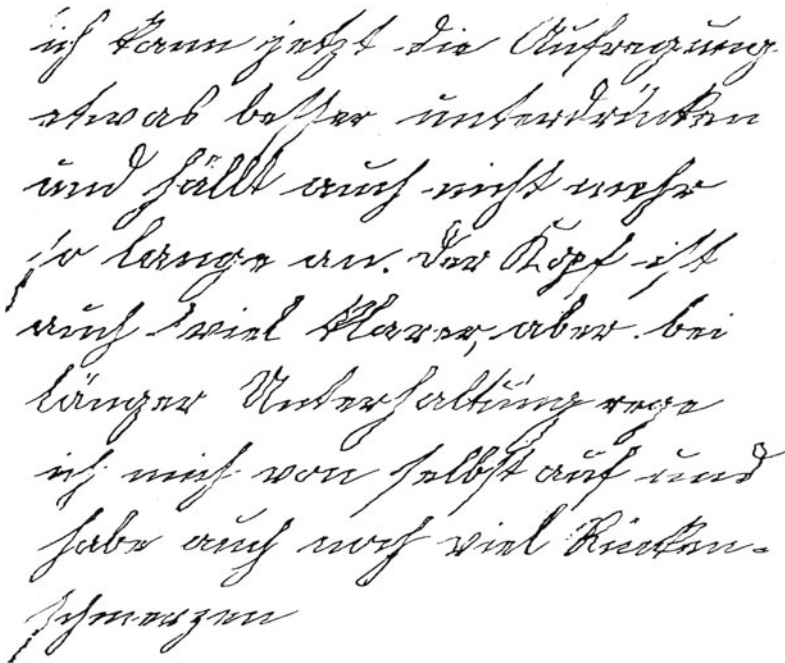 ich kann jetzt die Aufregung
etwas besser unterdrücken
und hällt auch nicht mehr
so lange an. der Kopf ist
auch viel klarer, aber bei
länger Unterhaltung rege
ich mich von selbst auf und
habe auch noch viel Rücken-
schmerzen